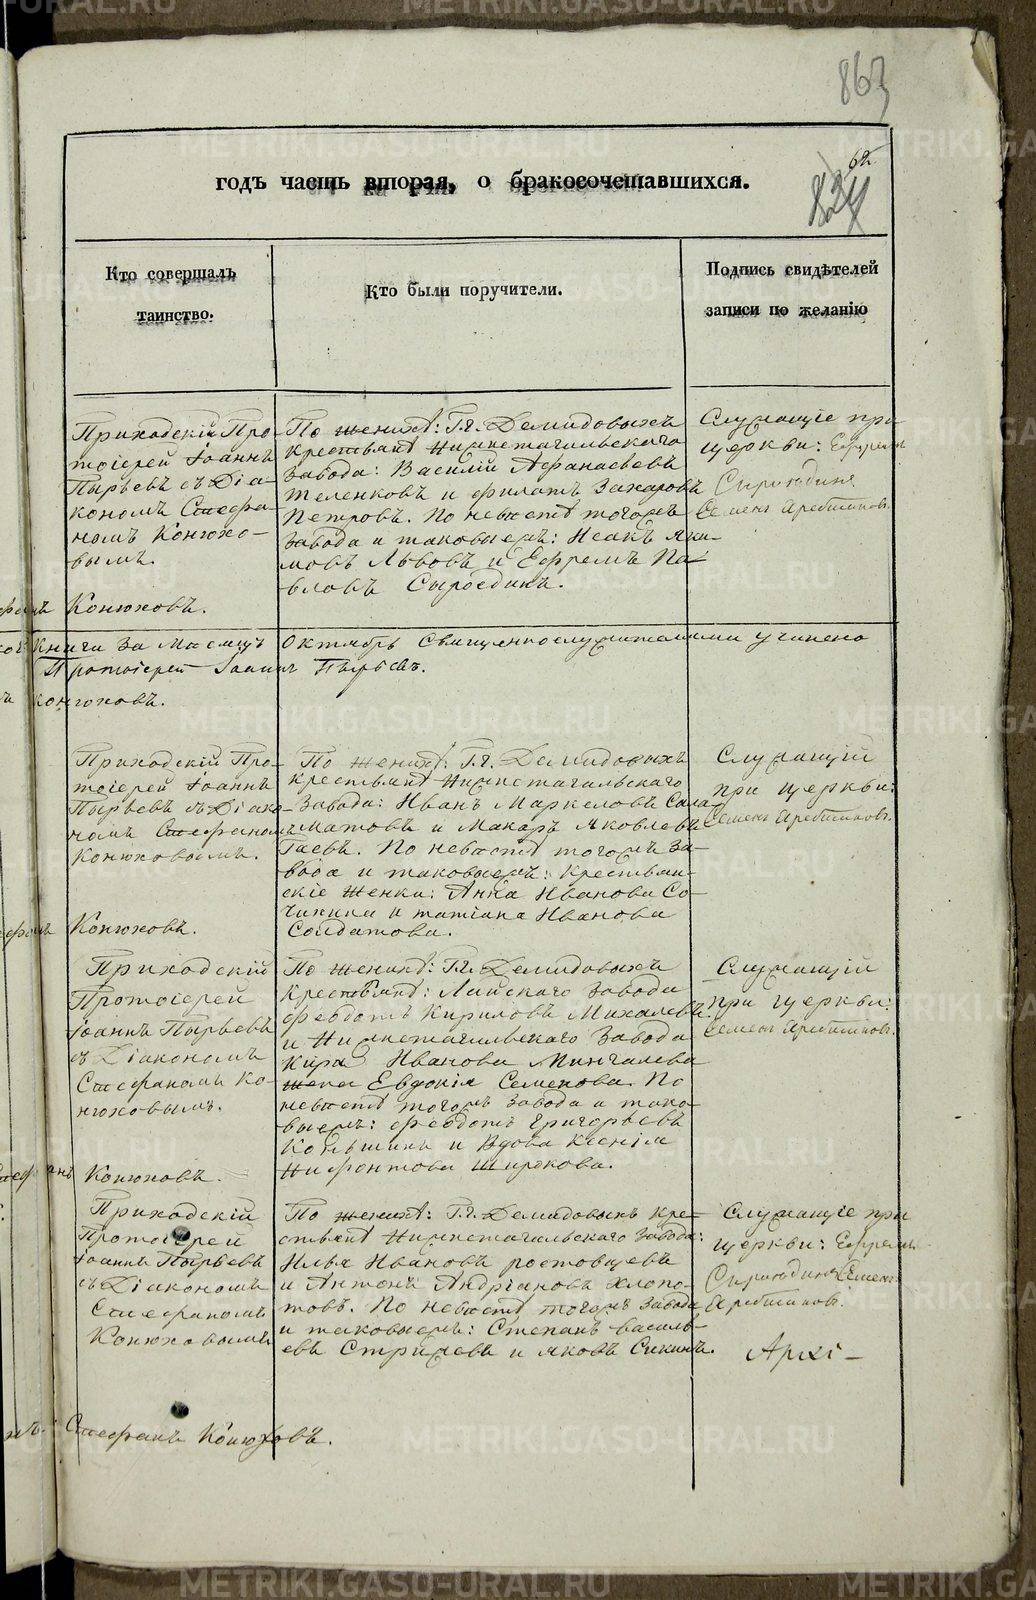 863
62
824
годъ часть вторая, о бракосочетавшихся.
Кто совершалъ
таинство.
Кто были поручители.
Подпись свидѣтелей
записи по желанію
Приходскій Про-
тоіерей Іоаннъ
Пырьевъ съ Діа-
кономъ Стефа-
номъ Конюхо-
вымъ.
По женихѣ: Г.г. Демидовыхъ
крестьянѣ Нижнетагильскаго
завода: Василій Афанасьевъ
Теленковъ и Филатъ Захаровъ
Петровъ. По невѣстѣ тогожъ
завода и таковыежъ: Исакъ Яки-
мовъ Львовъ и Ефремъ Па-
вловъ Сыроединъ.
Служащіе при
церкви: Ефремъ
Сироѣдинъ
Семенъ
Конюховъ.
Книги за Месяцъ Октябрь Священнослужителями учинена
Протоіерей Іоаннъ Пырьевъ.
Конюховъ.
Приходскій Про-
тоіерей Іоаннъ
Пырьевъ съ Діако-
номъ Стефаномъ
Конюховымъ.
По женихѣ: Г.г. Демидовыхъ
крестьянѣ Нижнетагильскаго
завода: Иванъ Маркеловъ Сала-
матовъ и Макаръ Яковлевъ
Гаевъ. По невѣстѣ тогожъ за-
вода и таковыежъ: крестьян-
скіе женки: Анна Иванова Со-
чинина и татіана Иванова
Солдатова.
Служащій
при церкви:
Семенъ
Конюховъ.
Приходскій
Протоіерей
Іоаннъ Пырьевъ
съ Діакономъ
Стефаномъ Ко-
нюховымъ.
По женихѣ: Г.г. Демидовыхъ
крестьянѣ: Лайскаго завода
Федотъ Кириловъ Михалевъ
и Нижнетагильскаго завода
Кира Иванова Мингалева
жена Евдокія Семенова. По
невѣстѣ тогожъ завода и тако-
выежъ: Федотъ Григорьевъ
и Вдова Ксенія
Нифонтова Широкова.
Служащій
при церкви:
Семенъ
Конюховъ.
Приходскій
Протоіерей
Іоаннъ Пырьевъ
съ Діакономъ
Стефаномъ
Конюховымъ
По женихѣ: Г.г. Демидовыхъ кре-
стьянѣ Нижнетагильскаго завода:
Илья Ивановъ ростовцевъ
и Антонъ Андріановъ хлопо-
товъ. По невѣстѣ тогожъ завода
и таковыежъ: Степанъ василь-
евъ Стрижевъ и яковъ Сикинъ.
Служащіе при
церкви: Ефремъ
Сироѣдинъ Семенъ
Архі-
Стефанъ Конюховъ.
METRIKI.GASO-URAL.RU